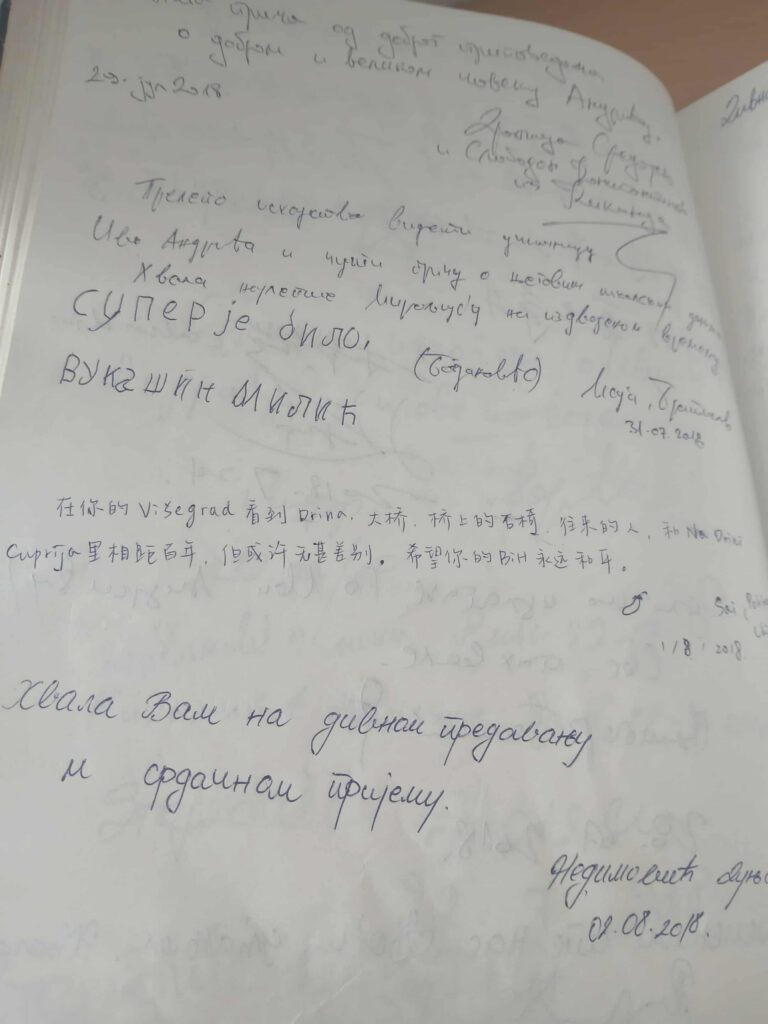 прича од доброг приповедача
о добром и великом човеку Андрићу.
29. јул 2018
и Слободан
из Кикинде
Прелепо искуство видети учионицу
Иве Андрића и чути причу о његовим школским данима
Хвала на издвојеном времену
СУПЕР је било.
ВУКАШИН МИЛИЋ
31.07.2018
在你的 Višegrad 看到 Drina, 大桥, 桥上的石椅, 往来的人, 和 Na Drini
Cuprija 里相距百年, 但或许无甚差别。希望你的 BiH 永远和平。
Sai,
1/8/2018
Хвала Вам на дивном предавању
и срдачном пријему.
Недимовић
02.08.2018.